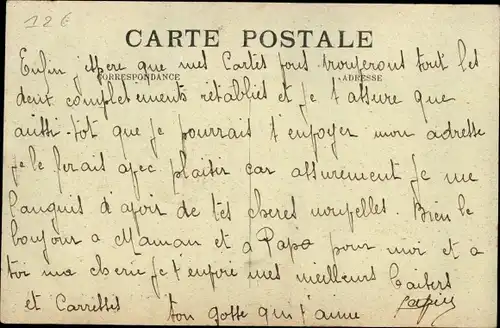 12€
CARTE POSTALE
Enfin j'espere que mes Cartes vous trouveront tout les
CORRESPONDANCE ADRESSE
deux completements rétablies et je t'assure que
aussi-tôt que je pourrait t'envoyer mon adresse
je le ferais avec plaisir car assurement je me
languis d'avoir de tes cheres nouvelles. Bien le
bonjour a Maman et a Papa pour moi et a
toi ma cherie je t'envoie mes meilleurs baisers
et Carresses ton gosse qui t'aime